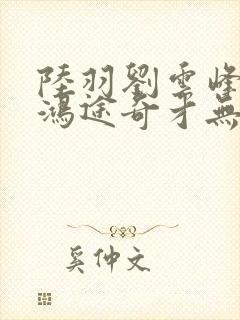 陸羽劉雲峰
鴻途奇才無
奚仲文